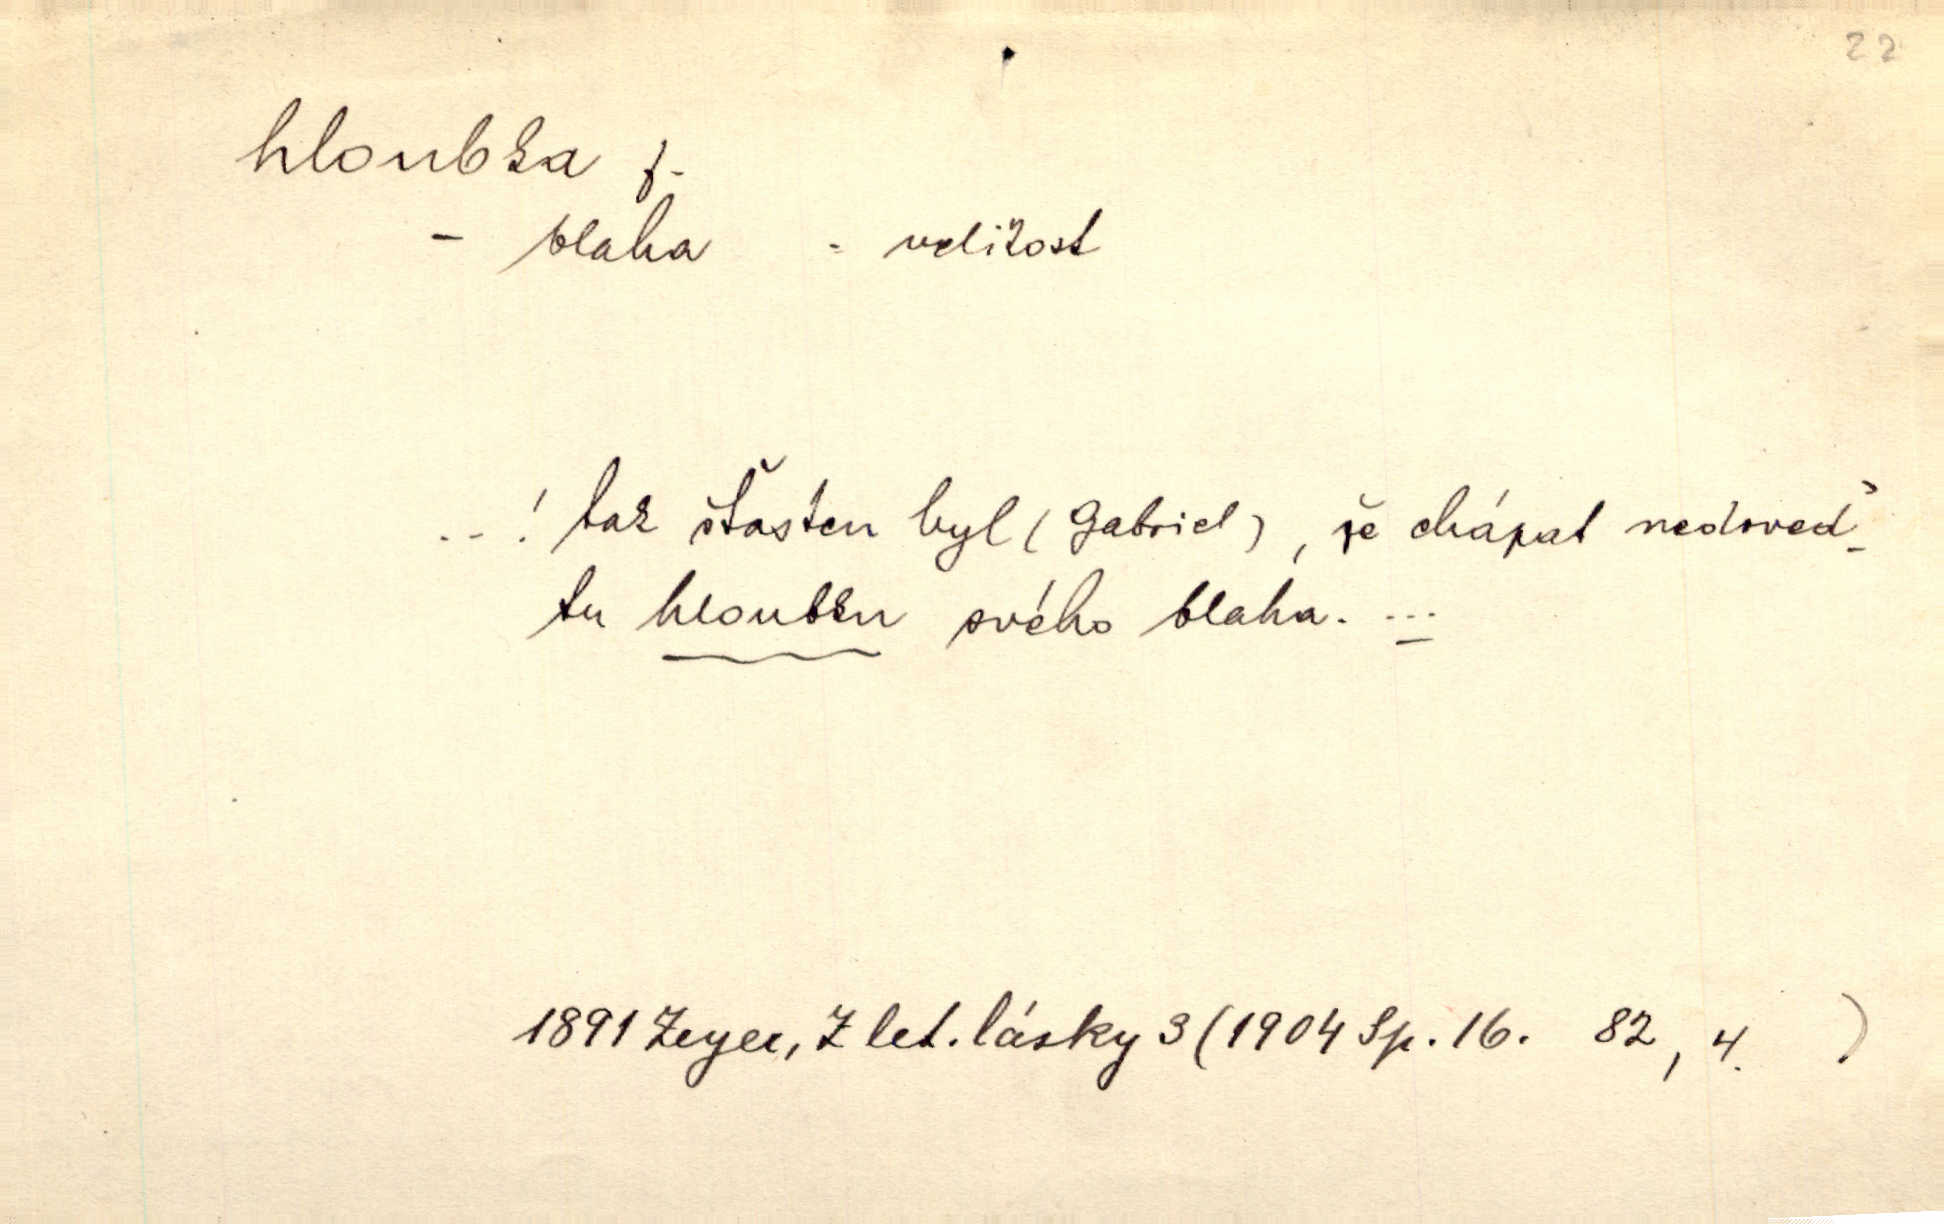 22
hloubka f.
- blaha - velikost
...! tak šťasten byl (Gabriel), že chápat nedoved̕
tu hloubku svého blaha. ...
1891 Zeyer, Z let. lásky 3 (1904 Sp. 16. 82, 4. )